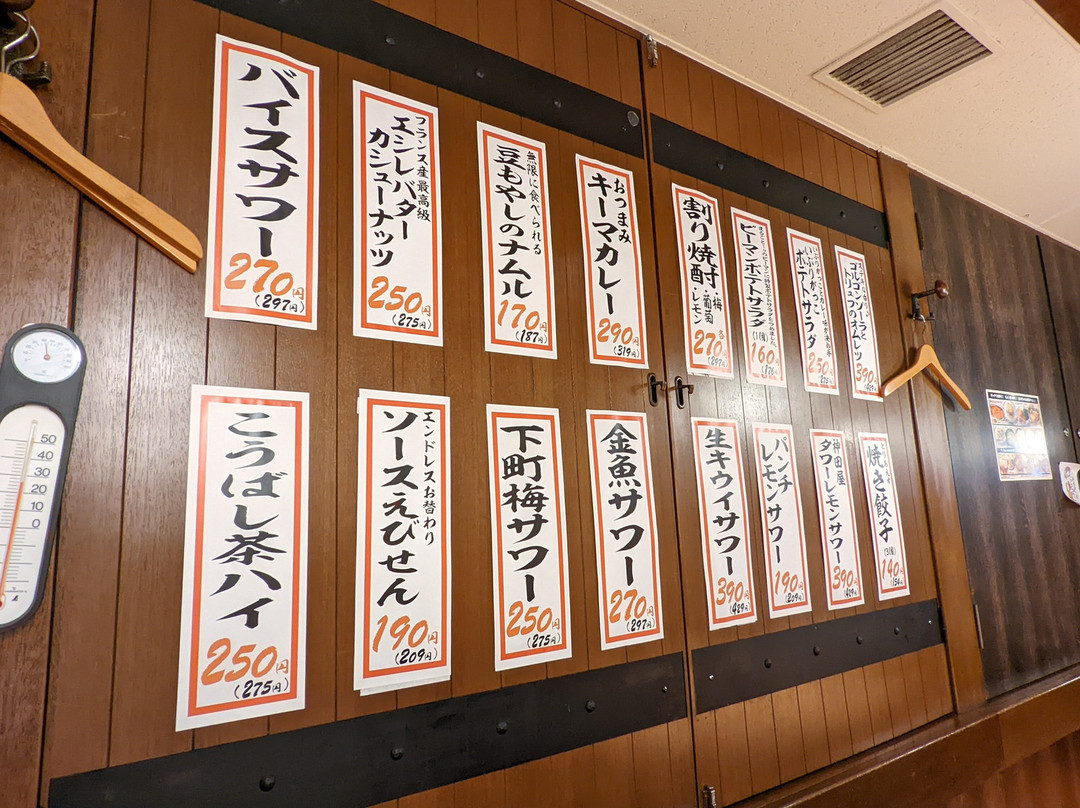 バイスサワー
270円
(297円)
フランス産最高級
エシレバター
カシューナッツ
250円
(275円)
無限に食べられる
豆もやしのナムル
170円
(187円)
おつまみ
キーマカレー
290円
(319円)
割り焼酎・梅・葡萄・レモン
各270円
(297円)
ピーマンポテトサラダ
(1個)
160円
(176円)
いぶりがっこ
ポテトサラダ
250円
(275円)
ゴルゴンゾーラと
トリュフのオムレツ
390円
(429円)
こうばし茶ハイ
250円
(275円)
エンドレスお替わり
ソースえびせん
190円
(209円)
下町梅サワー
250円
(275円)
金魚サワー
270円
(297円)
生キウイサワー
390円
(429円)
パンチ
レモンサワー
190円
(209円)
神田屋
タワーレモンサワー
390円
(429円)
焼き餃子
(3個)
140円
(154円)
50
40
30
20
10
0